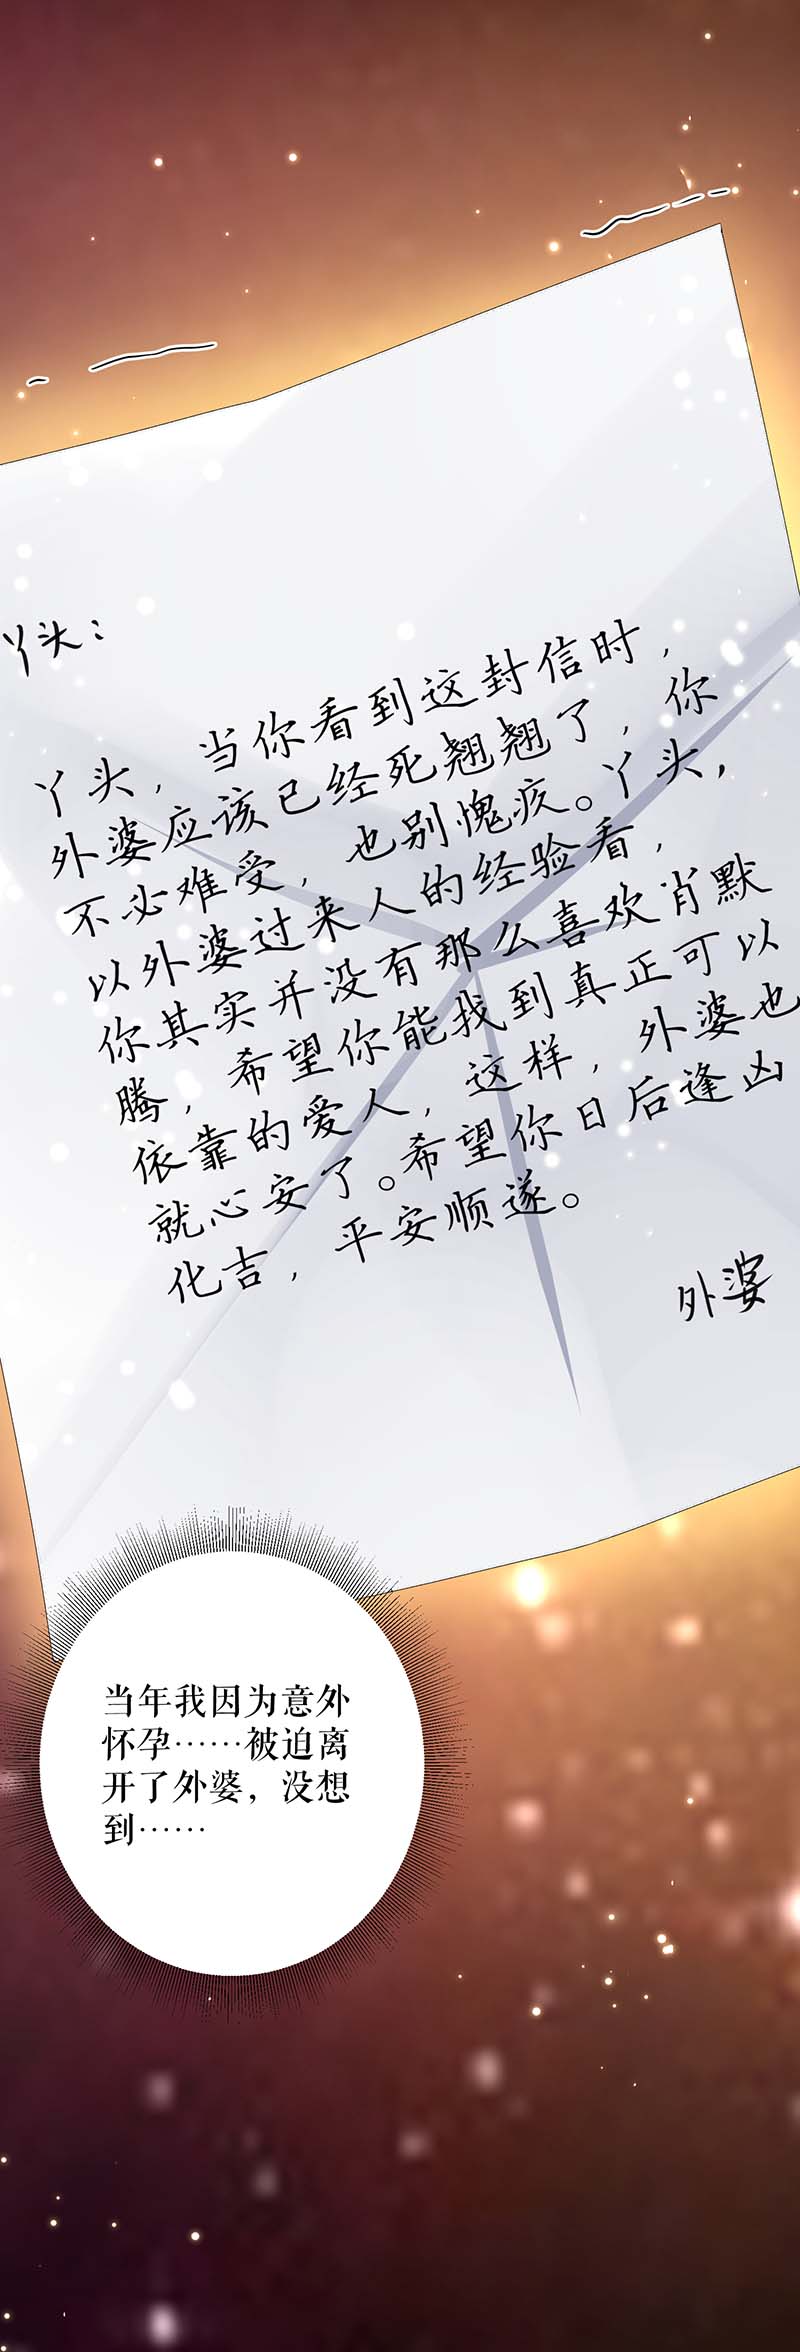 丫头：
丫头，当你看到这封信时，
外婆应该已经死翘翘了，你
不必难受，也别愧疚。丫头，
以外婆过来人的经验看，
你其实并没有那么喜欢肖默
腾，希望你能找到真正可以
依靠的爱人，这样，外婆也
就心安了。希望你日后逢凶
化吉，平安顺遂。
外婆
当年我因为意外
怀孕……被迫离
开了外婆，没想
到……